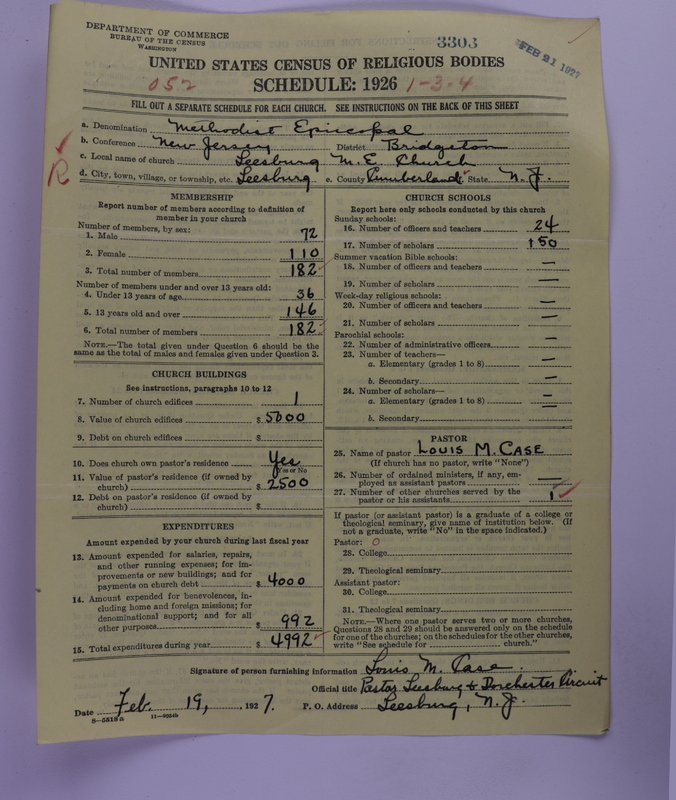 DEPARTMENT OF COMMERCE
BUREAU OF THE CENSUS
WASHINGTON
3303
FEB 21 1927
UNITED STATES CENSUS OF RELIGIOUS BODIES
052 SCHEDULE: 1926 1-3-4
FILL OUT A SEPARATE SCHEDULE FOR EACH CHURCH. SEE INSTRUCTIONS ON THE BACK OF THIS SHEET
a. Denomination Methodist Episcopal
b. Conference New Jersey District Bridgeton
c. Local name of church Leesburg M.E. Church
d. City, town, village, or township, etc. Leesburg e. County Cumberland State N.J.
R
MEMBERSHIP
Report number of members according to definition of
member in your church
Number of members, by sex:
1. Male 72
2. Female 110
3. Total number of members 182
Number of members under and over 13 years old:
4. Under 13 years of age 36
5. 13 years old and over 146
6. Total number of members 182
NOTE.—The total given under Question 6 should be the
same as the total of males and females given under Question 3.
CHURCH BUILDINGS
See instructions, paragraphs 10 to 12
7. Number of church edifices 1
8. Value of church edifices $ 5000
9. Debt on church edifices $
10. Does church own pastor's residence Yes
Yes or No
11. Value of pastor's residence (if owned by
church) $ 2500
12. Debt on pastor's residence (if owned by
church) $
EXPENDITURES
Amount expended by your church during last fiscal year
13. Amount expended for salaries, repairs,
and other running expenses; for im-
provements or new buildings; and for
payments on church debt $ 4000
14. Amount expended for benevolences, in-
cluding home and foreign missions; for
denominational support; and for all
other purposes $ 992
15. Total expenditures during year $ 4992
CHURCH SCHOOLS
Report here only schools conducted by this church
Sunday schools:
16. Number of officers and teachers 24
17. Number of scholars 150
Summer vacation Bible schools:
18. Number of officers and teachers —
19. Number of scholars —
Week-day religious schools:
20. Number of officers and teachers —
21. Number of scholars —
Parochial schools:
22. Number of administrative officers —
23. Number of teachers—
a. Elementary (grades 1 to 8) —
b. Secondary —
24. Number of scholars—
a. Elementary (grades 1 to 8) —
b. Secondary —
PASTOR
25. Name of pastor LOUIS M. CASE
(If church has no pastor, write "None")
26. Number of ordained ministers, if any, em-
ployed as assistant pastors —
27. Number of other churches served by the
pastor or his assistants 1
If pastor (or assistant pastor) is a graduate of a college or
theological seminary, give name of institution below. (If
not a graduate, write "No" in the space indicated.)
Pastor: O
28. College
29. Theological seminary
Assistant pastor:
30. College
31. Theological seminary
NOTE.—Where one pastor serves two or more churches,
Questions 28 and 29 should be answered only on the schedule
for one of the churches; on the schedules for the other churches,
write "See schedule for church."
Signature of person furnishing information Louis M. Case
Official title Pastor Leesburg & Dorchester Circuit
Date Feb. 19, , 1927. P. O. Address Leesburg, N.J.